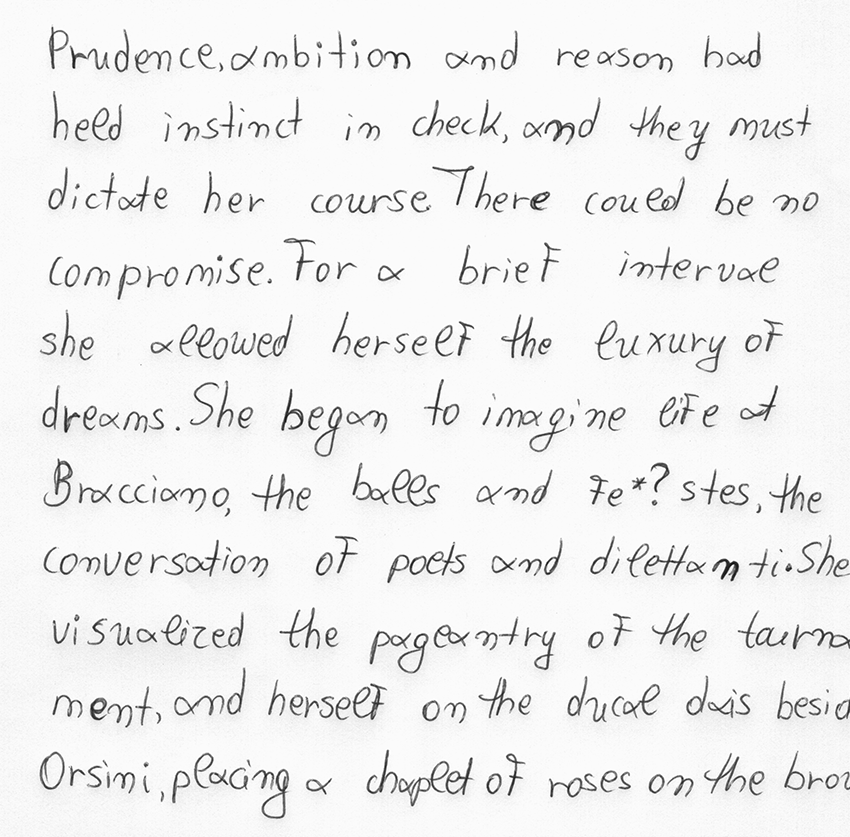 Prudence, ambition and reason had
held instinct in check, and they must
dictate her course. There could be no
compromise. For a brief interval
she allowed herself the luxury of
dreams. She began to imagine life at
Bracciano, the balls and fe*? stes, the
conversation of poets and dilettanti. She
visualized the pageantry of the taurna
ment, and herself on the ducal dais besid
Orsini, placing a chaplet of roses on the brow